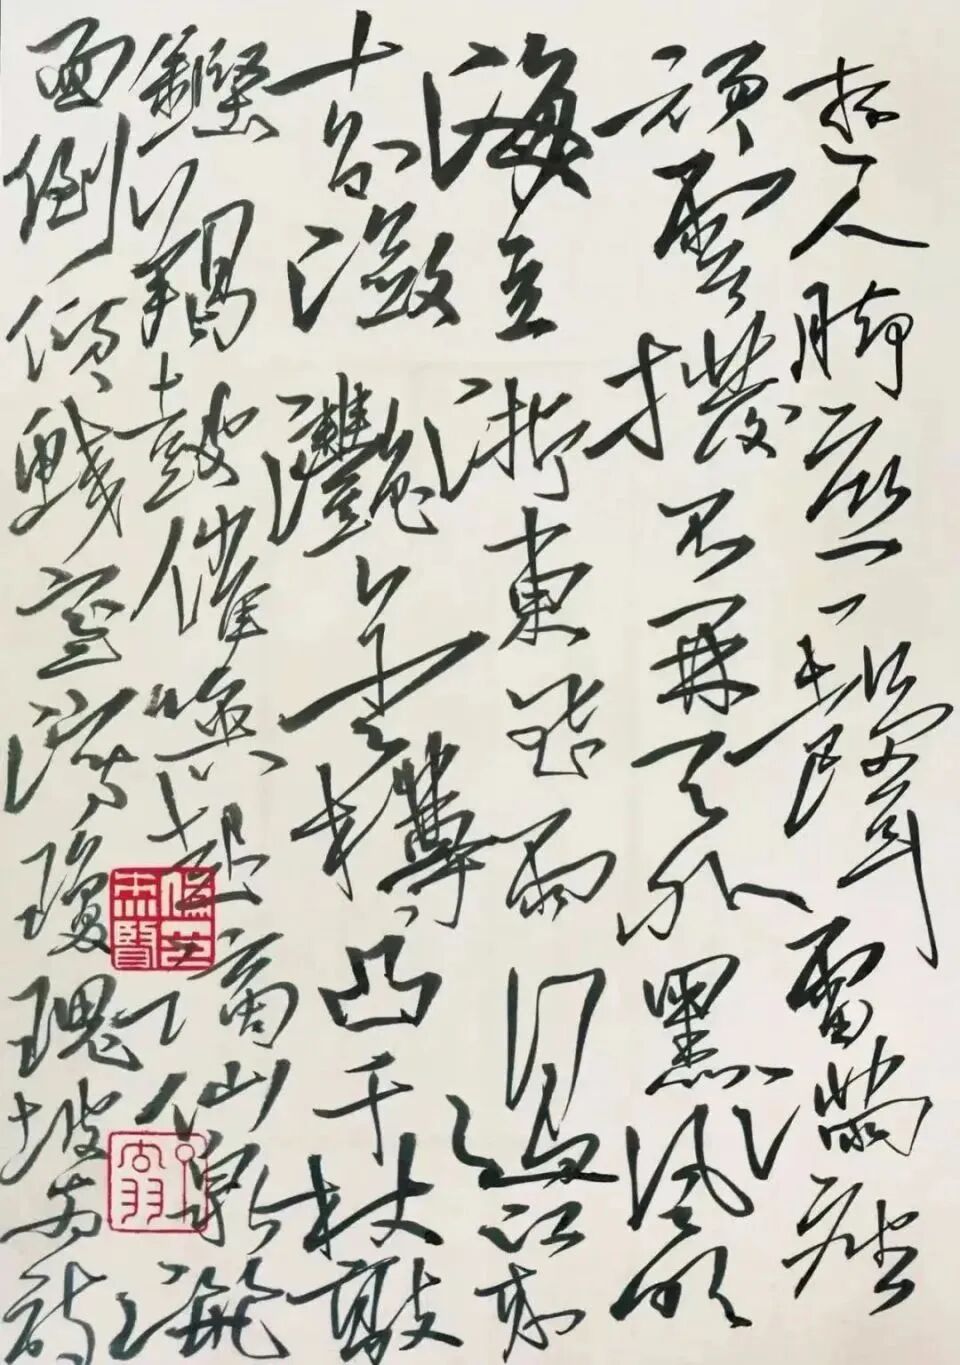 遊人腳底一聲雷滿座
頑雲撥不開天外黑風吹
海立浙東飛雨過江來
十分瀲灩金樽凸千杖敲
鏗羯鼓催喚起謫仙泉灑
面倒傾鮫室瀉瓊瑰坡翁詩